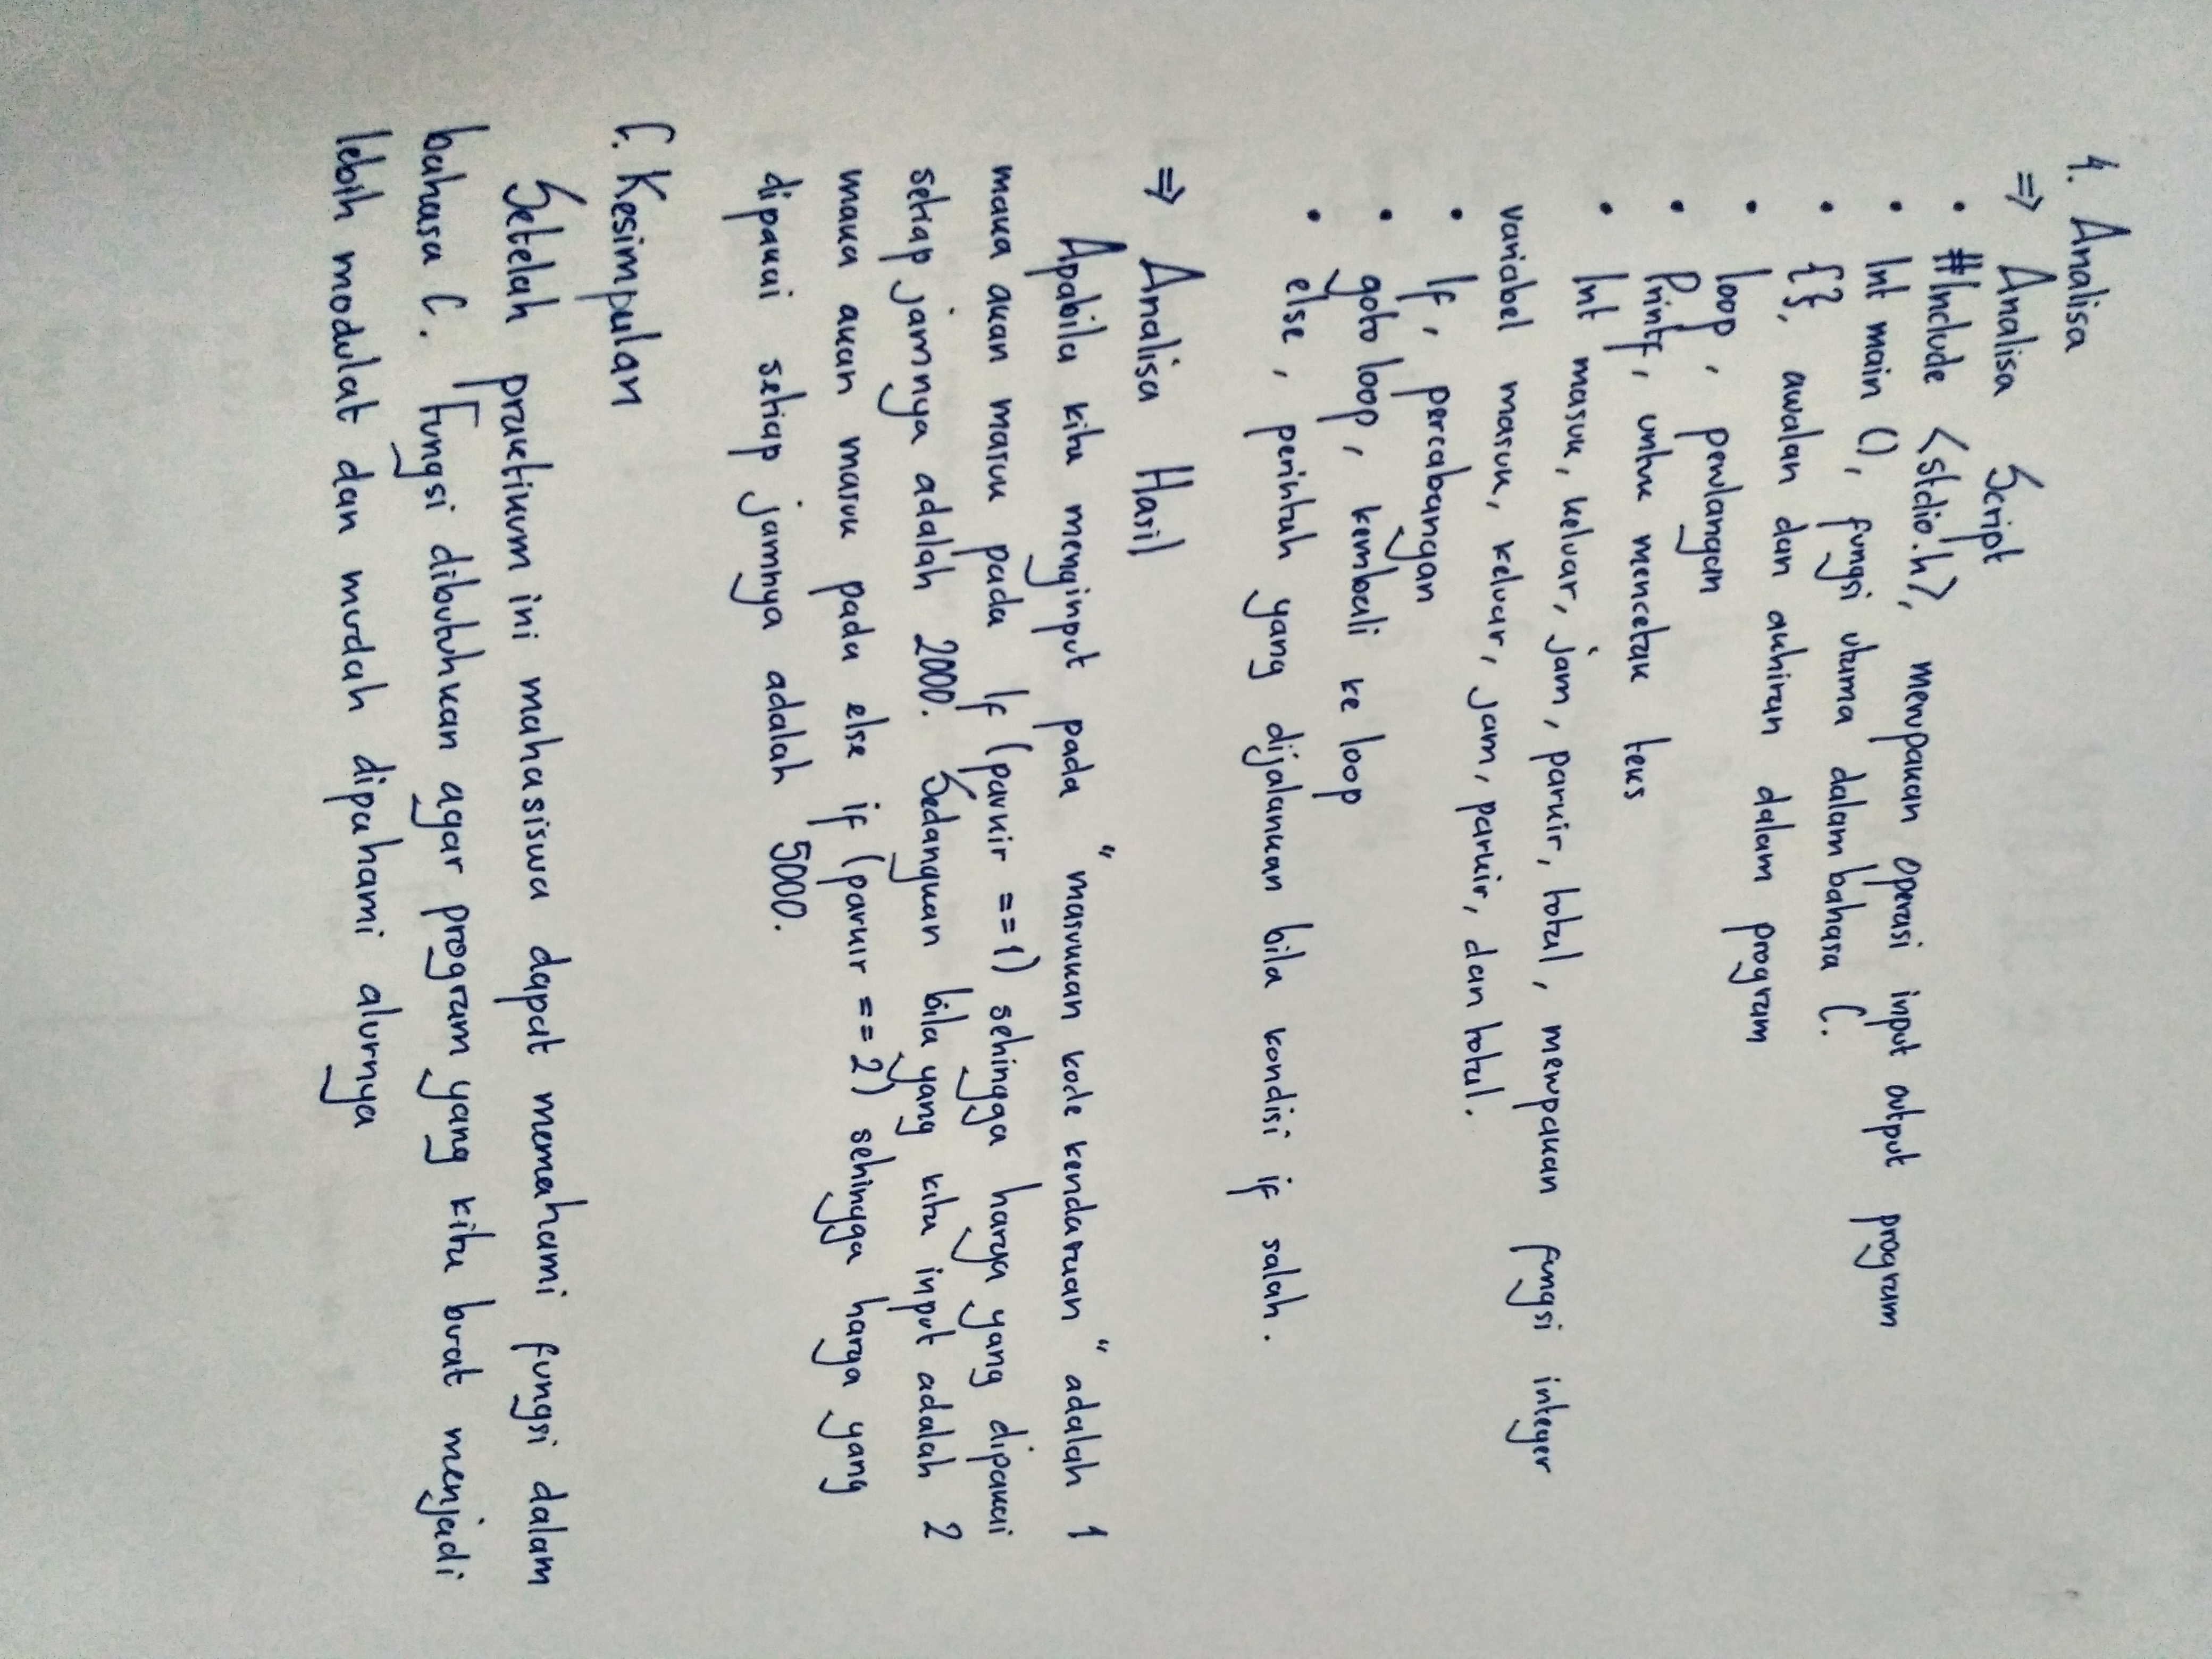 4. Analisa
⇒ Analisa Script
• #Include <stdio.h>, merupakan operasi input output program
• Int main (), fungsi utama dalam bahasa C.
• {}, awalan dan akhiran dalam program
• loop, perulangan
• Printf, untuk mencetak teks
• Int masuk, keluar, jam, parkir, total, merupakan fungsi integer
variabel masuk, keluar, jam, parkir, dan total.
• If, percabangan
• goto loop, kembali ke loop
• else, perintah yang dijalankan bila kondisi if salah.
⇒ Analisa Hasil
Apabila kita menginput pada "masukkan kode kendaraan" adalah 1
maka akan masuk pada If (parkir ==1) sehingga harga yang dipakai
setiap jamnya adalah 2000. Sedangkan bila yang kita input adalah 2
maka akan masuk pada else if (parkir ==2) sehingga harga yang
dipakai setiap jamnya adalah 5000.
C. Kesimpulan
Setelah praktikum ini mahasiswa dapat memahami fungsi dalam
bahasa C. Fungsi dibutuhkan agar program yang kita buat menjadi
lebih modulat dan mudah dipahami alurnya